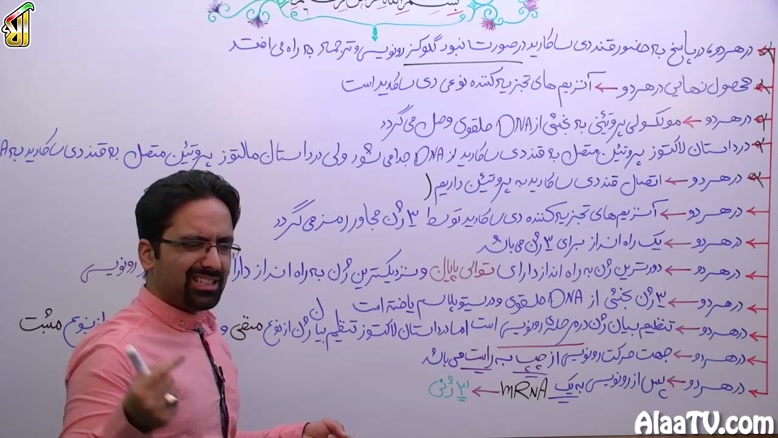 بسم الله الرحمن الرحیم
در هر دو، در پاسخ به حضور قند دی ساکارید در صورت نبود گلوکز رونویسی و ترجمه به راه می افتد
محصول نهایی در هر دو ← آنزیم های تجزیه کننده نوعی دی ساکارید است
در هر دو ← مولکولی پروتئنی به بخشی از DNA حلقوی وصل می گردد
در داستان لاکتوز پروتئین متصل به قند دی ساکارید از DNA جدا می شود ولی در داستان مالتوز پروتئین متصل به قند دی ساکارید به
در هر دو ← اتصال قند دی ساکارید به پروتئین داریم (
در هر دو ← آنزیم های تجزیه کننده دی ساکارید توسط ۳ ژن مجاور رمز می گردد
در هر دو ← یک راه انداز برای ۳ ژن می باشد
در هر دو ← دورترین ژن به راه انداز دارای توالی پایان و نزدیکترین ژن به راه انداز رونویسی
در هر دو ← ۳ ژن بخشی از DNA حلقوی و در سیتوپلاسم یافته است
در هر دو ← تنظیم بیان ژن در مرحله رونویسی است اما در داستان لاکتوز تنظیم بیان ژن از نوع منفی و از نوع مثبت
در هر دو ← جهت حرکت رونویسی از چپ به راست می باشد
در هر دو ← پس از رونویسی به یک mRNA ← ۳ ژنی
AlaaTV.com